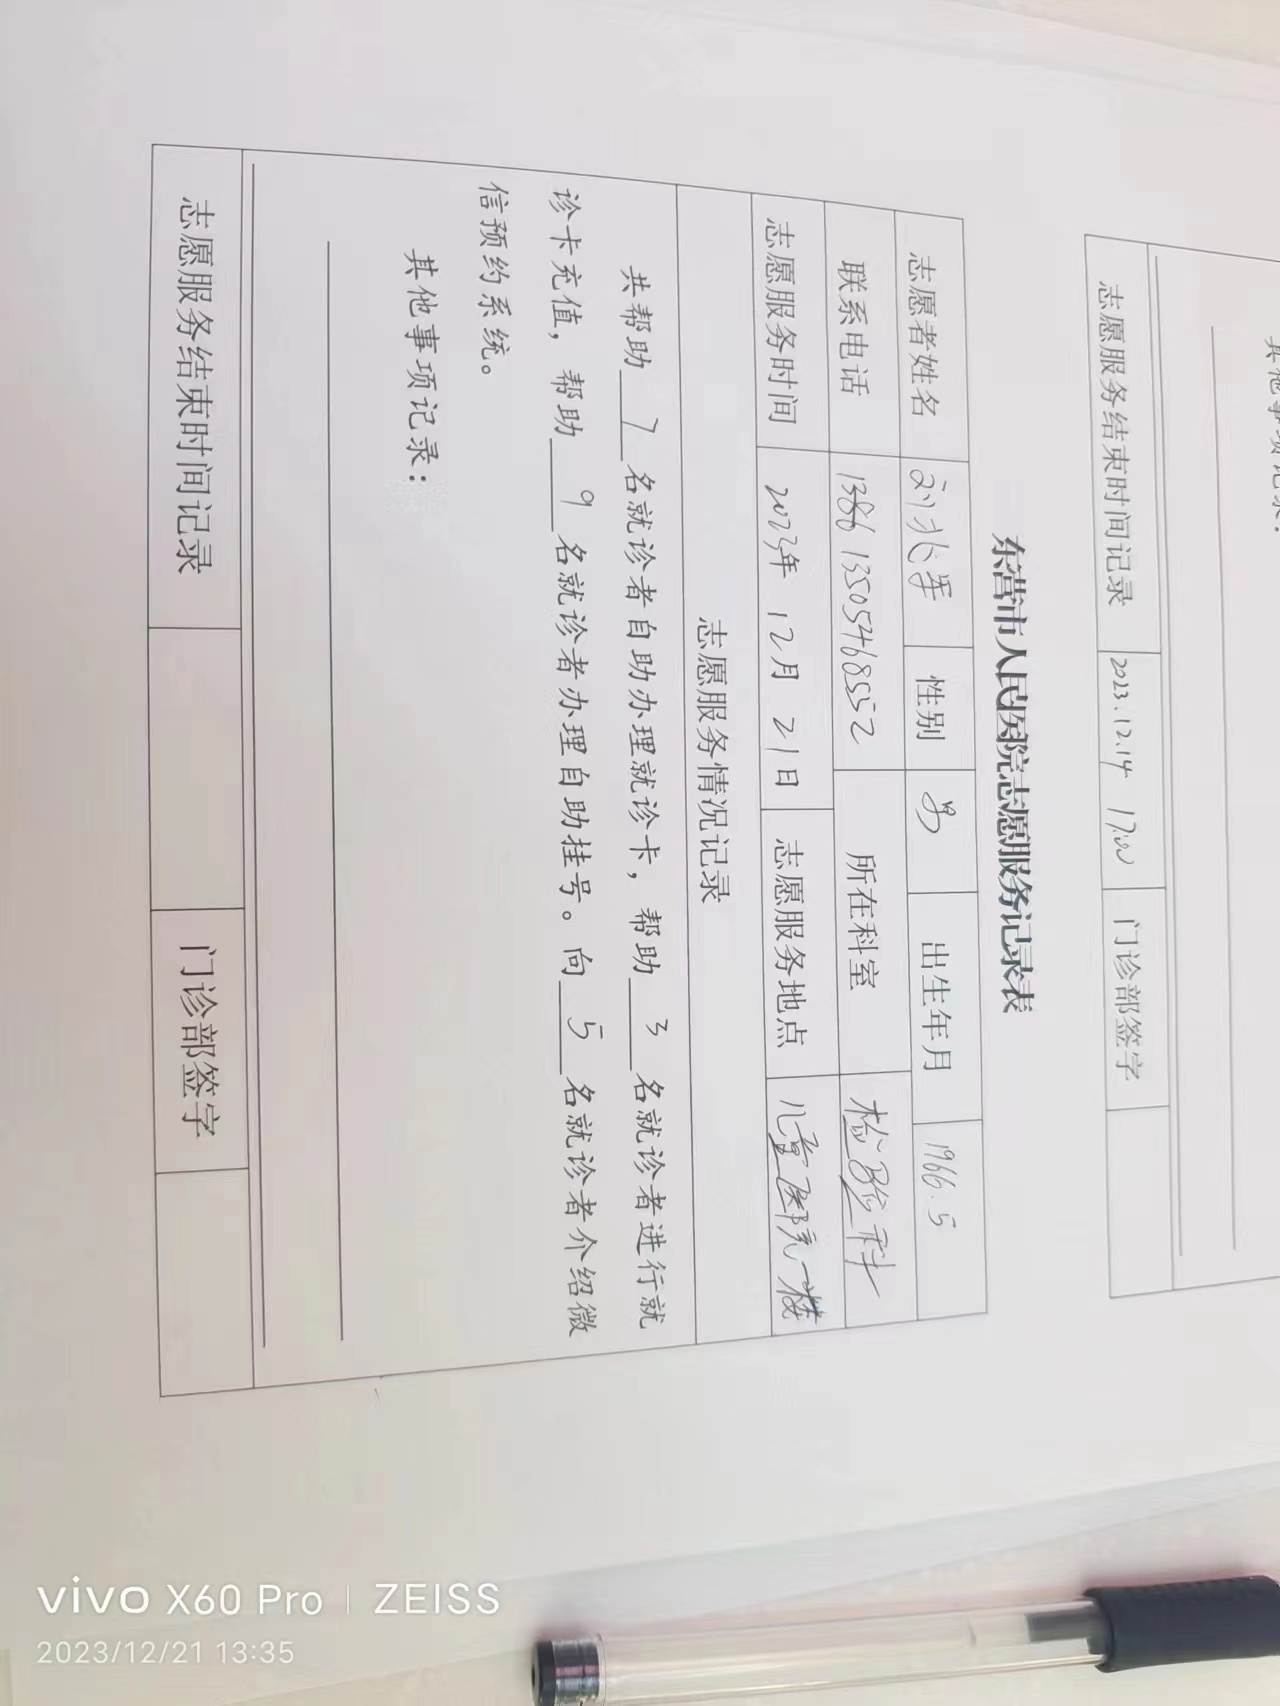 其他事项记录：
志愿服务结束时间记录 2023.12.14 17:00 门诊部签字
东营市人民医院志愿服务记录表
志愿者姓名 刘兆军 性别 男 出生年月 1966.5
联系电话 1386 13505468552 所在科室 检验科
志愿服务时间 2023年 12月 21日 志愿服务地点 儿童医院一楼
志愿服务情况记录
共帮助 7 名就诊者自助办理就诊卡，帮助 3 名就诊者进行就
诊卡充值，帮助 9 名就诊者办理自助挂号。向 5 名就诊者介绍微
信预约系统。
其他事项记录：
志愿服务结束时间记录 门诊部签字
vivo X60 Pro | ZEISS
2023/12/21 13:35